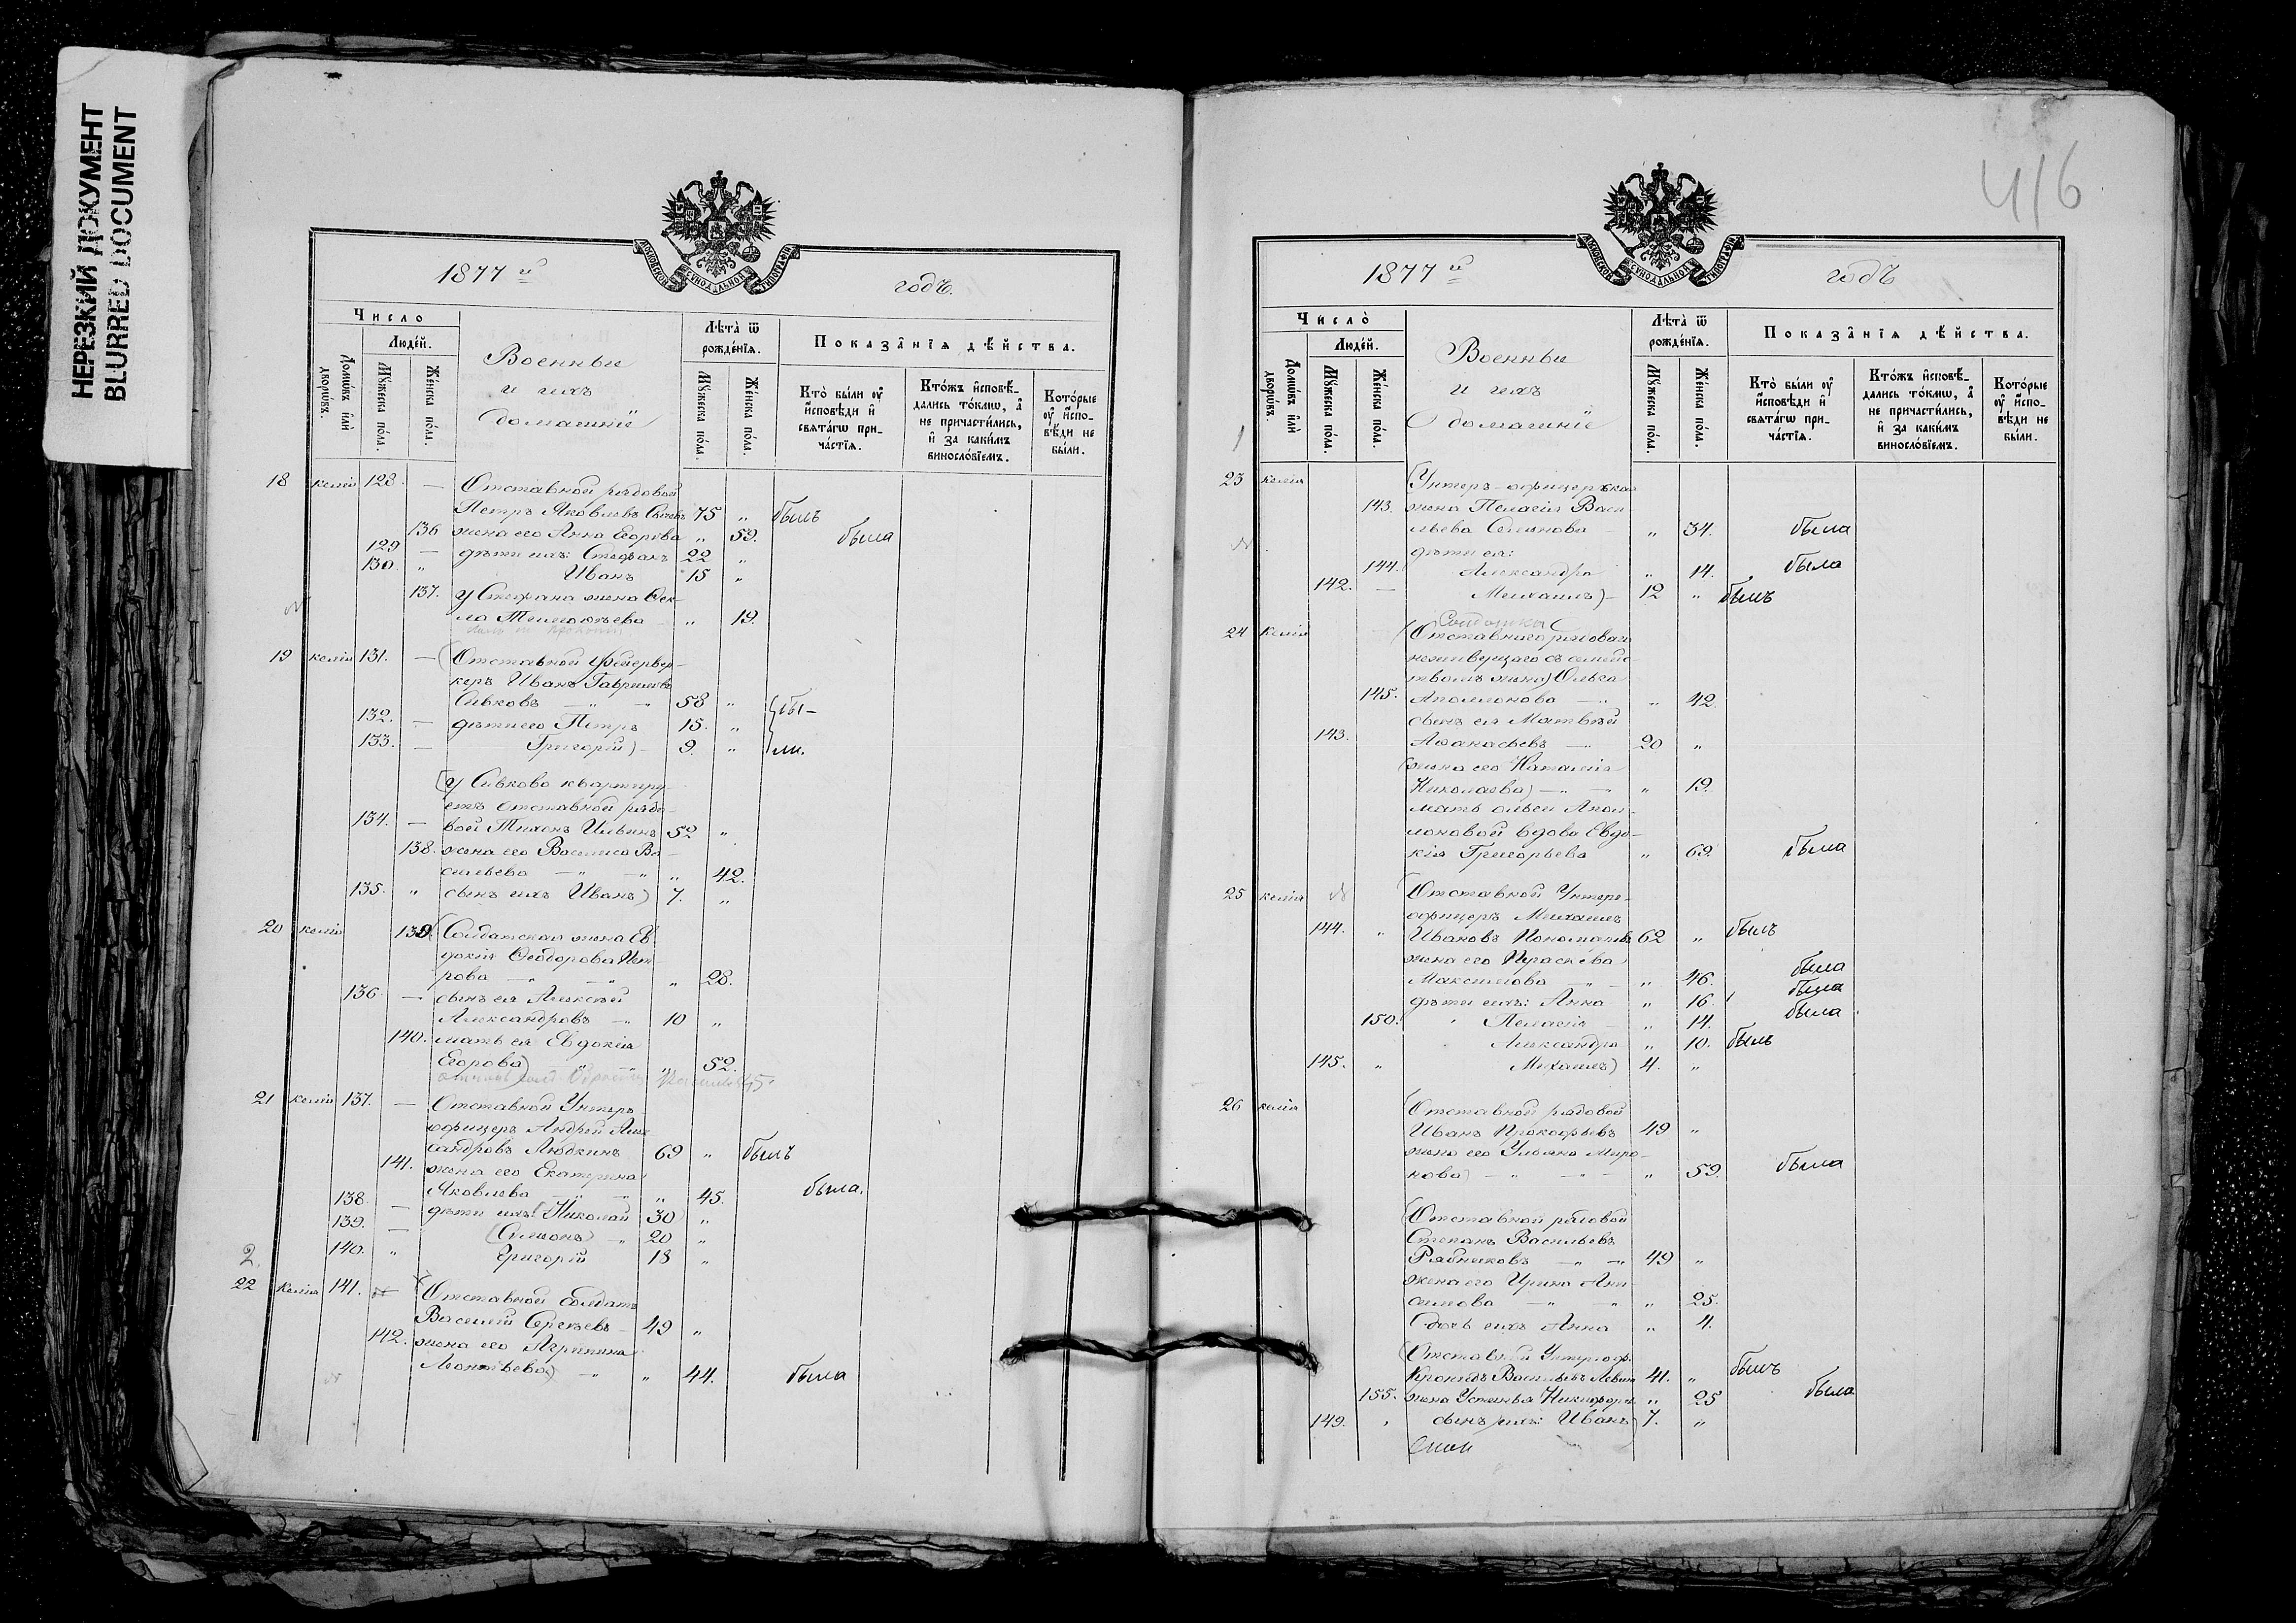 НЕРЕЗКИЙ ДОКУМЕНТ
BLURRED DOCUMENT
1877й годъ.
МОСКОВСКОЙ СѴНОДАЛЬНОЙ ТИПОГРАФІИ
Число
Людей.
Домѡвъ или дворѡвъ.
Мꙋжеска пола.
Женска пола.
Военные
и ихъ
домашніе
Лѣта ѿ рожденїѧ.
Мꙋжеска пола.
Женска пола.
Показанїѧ дѣйства.
Кто были оу исповѣди и свѧтагѡ причастїѧ.
Ктожъ исповѣдались токмѡ, а не причастились, и за какимъ винословїемъ.
Которые оу исповѣди не были.
18 келія 128. — Отставной рядовой
Петръ Яковлевъ 75 „ былъ
136 жена его Анна Егорова „ 59. была
129 — дѣти ихъ: Стефанъ 22 „
130. „ Иванъ 15 „
137. у Стефана жена Ѳек-
ла „ 19.
19 келія 131. — Отставной фейервер-
керъ Иванъ Гавриловъ
Сивковъ 58 „ бы-
132. — дѣти его Петръ 15. „
133. — Григорій 9. „ ли.
у Сивкова квартиру-
етъ отставной рядо-
134. — вой Тихонъ Ильинъ 52 „
138. жена его Василиса Ва-
сильева „ 42.
135. „ сынъ ихъ Иванъ 7. „
20 келія 139 Солдатская жена Ев-
докія Ѳеодорова Пет-
рова „ 28.
136. — сынъ ея Алексѣй
Александровъ 10 „
140. мать ея Евдокія
Егорова „ 52.
21 келія 137. — Отставной Унтеръ
офицеръ Андрей Алек-
сандровъ Любкинъ 69 „ былъ
141. жена его Екатерина
Яковлева „ 45. была.
138. — дѣти ихъ: Николай 30 „
139. — Симеонъ 20 „
140. „ Григорій 18 „
2
22 келія 141. Отставной солдатъ
Василій Сергѣевъ 49 „
142. жена его Агрипина
Леонтьева „ 44. была
416
1877й годъ
МОСКОВСКОЙ СѴНОДАЛЬНОЙ ТИПОГРАФІИ
Число
Людей.
Домѡвъ или дворѡвъ.
Мꙋжеска пола.
Женска пола.
Военные
и ихъ
домашніе
Лѣта ѿ рожденїѧ.
Мꙋжеска пола.
Женска пола.
Показанїѧ дѣйства.
Кто были оу исповѣди и свѧтагѡ причастїѧ.
Ктожъ исповѣдались токмѡ, а не причастились, и за какимъ винословїемъ.
Которые оу исповѣди не были.
1
23 келія Унтеръ-офицерская
143. жена Пелагія Васи-
льева „ 34. была
дѣти ея:
144. Александра „ 14. была
142. — Михаилъ 12 „ былъ
Солдатка
24 келія Отставнаго рядоваго
неживущаго съ семей-
ствомъ жена Ольга
145. Аполлонова „ 42.
сынъ ея Матвѣй
143. Аѳанасьевъ 20 „
жена его Наталія
Николаева „ 19.
мать Ольги Апол-
лоновой вдова Евдо-
кія Григорьева „ 69. была
25 келія Отставной Унтеръ-
офицеръ Михаилъ
144. „ Ивановъ 62 „ былъ
жена его Параскева
Максимова „ 46. была
дѣти ихъ: Анна „ 16. была
150. Пелагія „ 14. была
Александра „ 10. былъ
145. „ Михаилъ 4. „
26 келія Отставной рядовой
Иванъ Прокофьевъ 49 „
жена его Ульяна Миро-
нова „ 59. была
Отставной рядовой
Степанъ Васильевъ
Рябчиковъ 49 „
жена его Ирина Ани-
симова „ 25.
дочь ихъ Анна „ 4.
Отставной Унтеръ оф.
Васильевъ 41. „ былъ
155. жена Устинья „ 25 была
149. „ сынъ ихъ: Иванъ 7. „